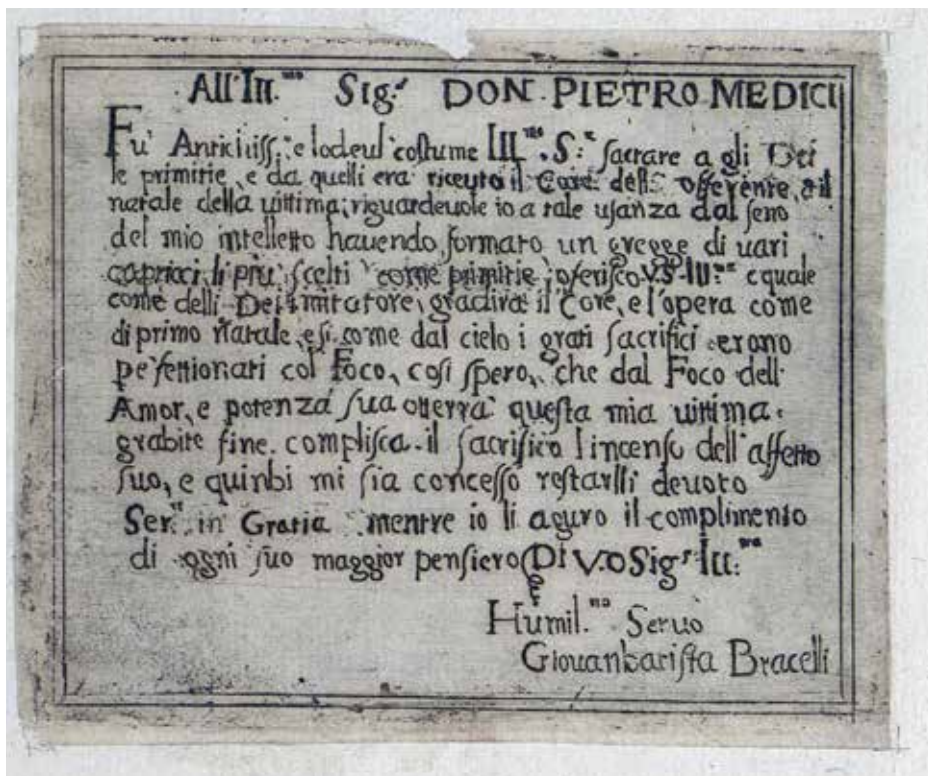 All' Ill.mo Sig.r DON PIETRO MEDICI
Fù Antichiss.o e lodeul' costume Ill.mo S.re sacrare a gli Dei
le primitie, e da quelli era riceuto il Core dell' offerente, e il
natale della uittima; riguardeuole io a tale usanza dal seno
del mio intelletto hauendo formato un gregge di uari
capricci, li più scelti come primitie oferisco V.S. Ill.ma e quale
come delli Dei imitatore, gradirà il Core, e l'opera come
di primo Natale, e si come dal cielo i grati sacrifici erono
pe'fettionati col Foco, così spero, che dal Foco dell'
Amor, e potenza sua otterrà questa mia uittima
grabite fine. complisca il sacrifico l'incenso dell' affetto
suo, e quinbi mi sia concesso restarlli deuoto
Ser.re in Gratia mentre io li aguro il complimento
di ogni suo maggior pensiero Di V.O Sig.r Ill.ma
Humil.mo Seruo
Giouanbatista Bracelli